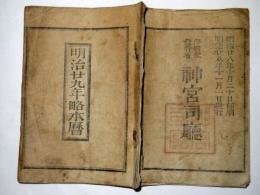 明治廿八年十月二十日印刷
明治廿八年十一月一日發行
神宮司廳
明治廿九年略本暦